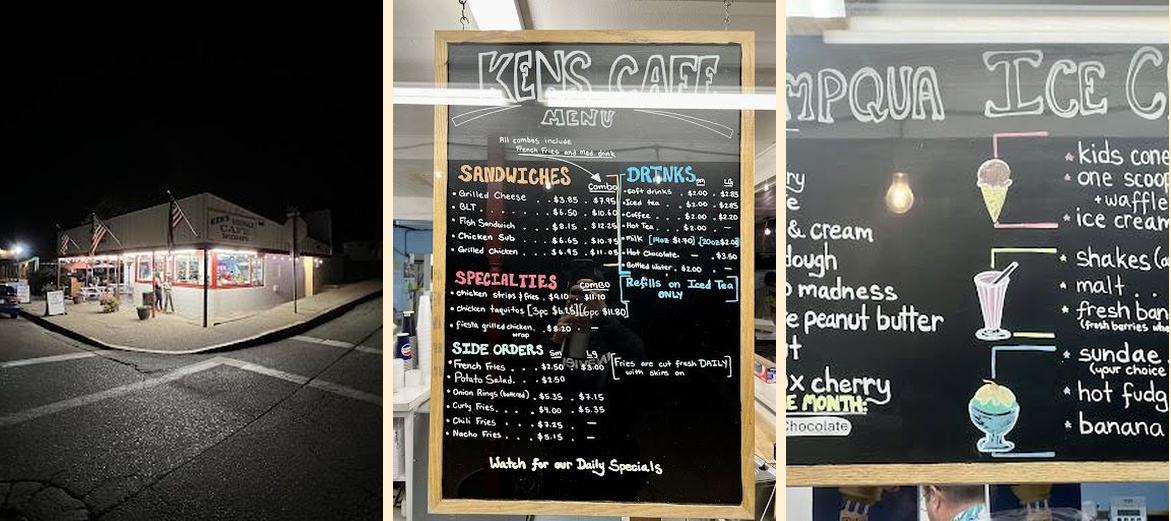 KEN'S
CAFE
KENS CAFE
MENU
All combos include
French Fries and Med. drink
SANDWICHES Combo
• Grilled Cheese . $3.85 . $7.95
• BLT . . . . $6.50 . $10.60
• Fish Sandwich . $8.15 . $12.25
• Chicken Sub . . $6.65 . $10.75
• Grilled Chicken . . $6.95 . $11.05
DRINKS sm LG
• soft drinks . $2.00 . $2.85
• Iced tea . . $2.00 . $2.85
• Coffee . . . $2.00 . $2.20
• Hot Tea . . $2.00 —
• Milk [14oz $1.70] [20oz $2.05]
• Hot Chocolate — . $3.50
• Bottled Water . $2.00 —
[Refills on Iced Tea
ONLY]
SPECIALTIES COMBO
• chicken strips & fries . $9.10 . $11.70
• chicken taquitos [3pc $6.15][6pc $11.80]
• fiesta grilled chicken . $8.20 . —
wrap
SIDE ORDERS Sm Lg
• French Fries . . . $2.50 . $3.00
[Fries are cut fresh DAILY
with skins on]
• Potato Salad. . . $2.50
• Onion Rings (battered) . $5.35 . $7.15
• Curly Fries. . . $4.00 . $5.35
• Chili Fries . . . $7.25 . —
• Nacho Fries . . . $5.15 . —
Watch for our Daily Specials
MPQUA ICE C
ry
e
& cream
dough
o madness
e peanut butter
t
x cherry
E MONTH:
Chocolate
* kids cone
* one scoop
+ waffle
* ice cream
* shakes (
* malt . .
* fresh ban
(fresh berries whe
* sundae
(your choice
* hot fudg
* banana